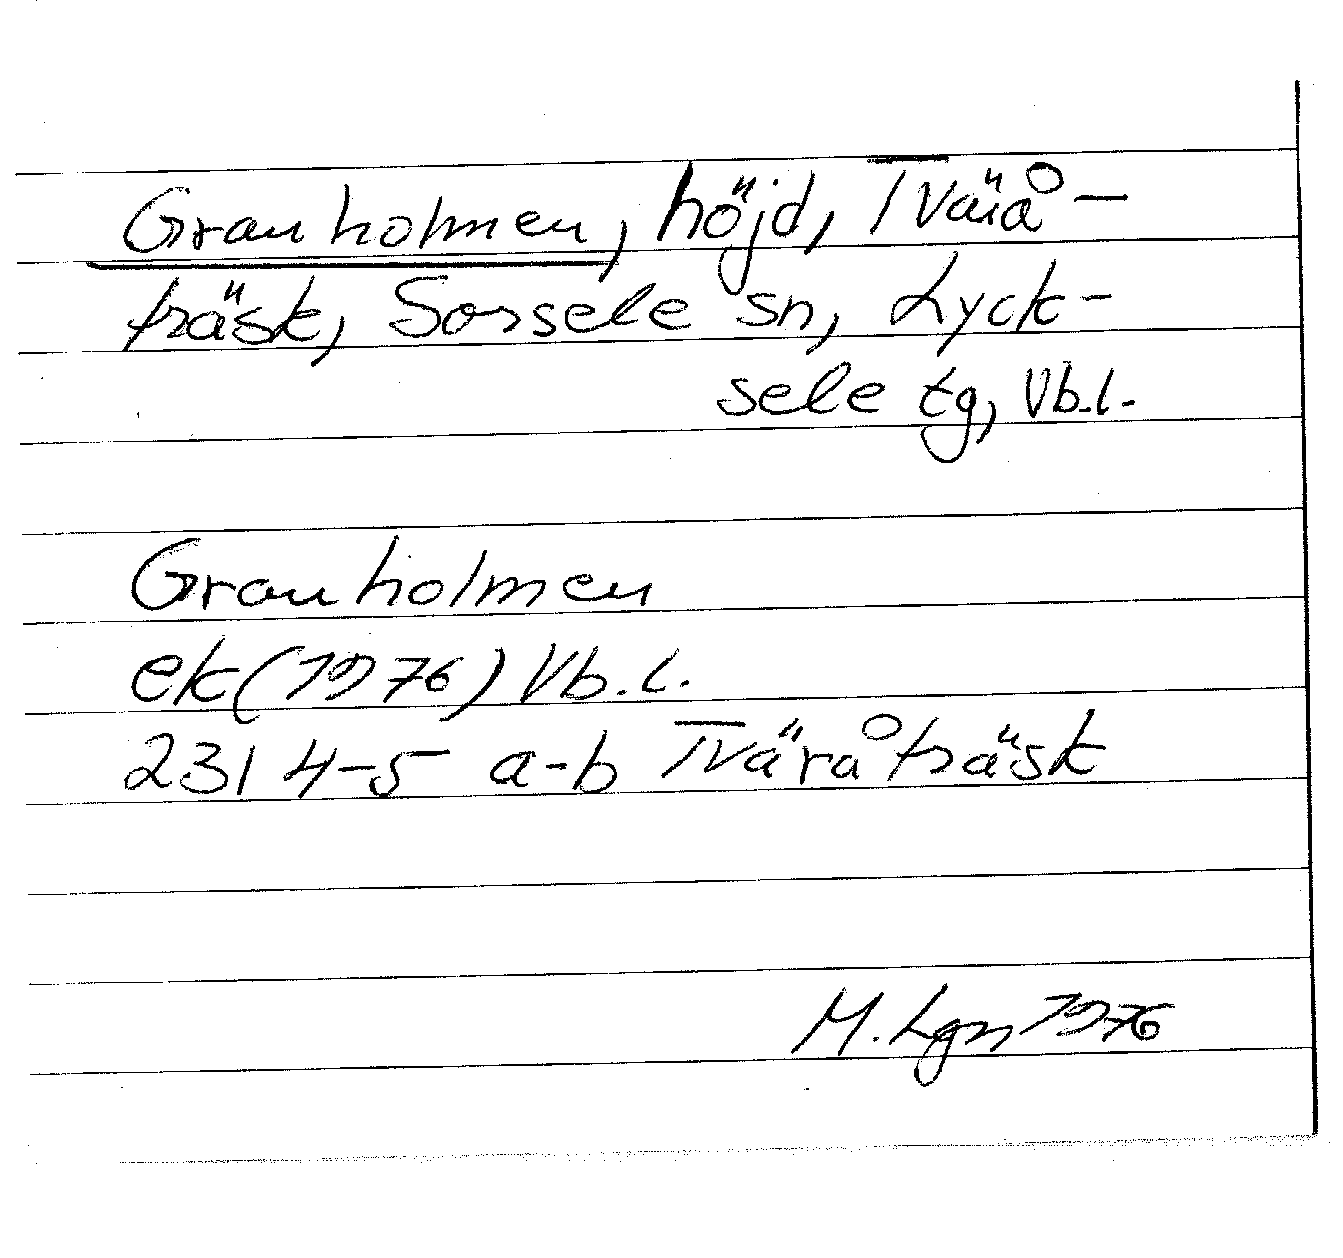 Granholmen, höjd, Tvärå-
träsk, Sorsele sn, Lyck-
sele tg, Vb.l.
Granholmen
ek(1976) Vb.l.
231 4-5 a-b Tväråträsk
M. Lgn 1976